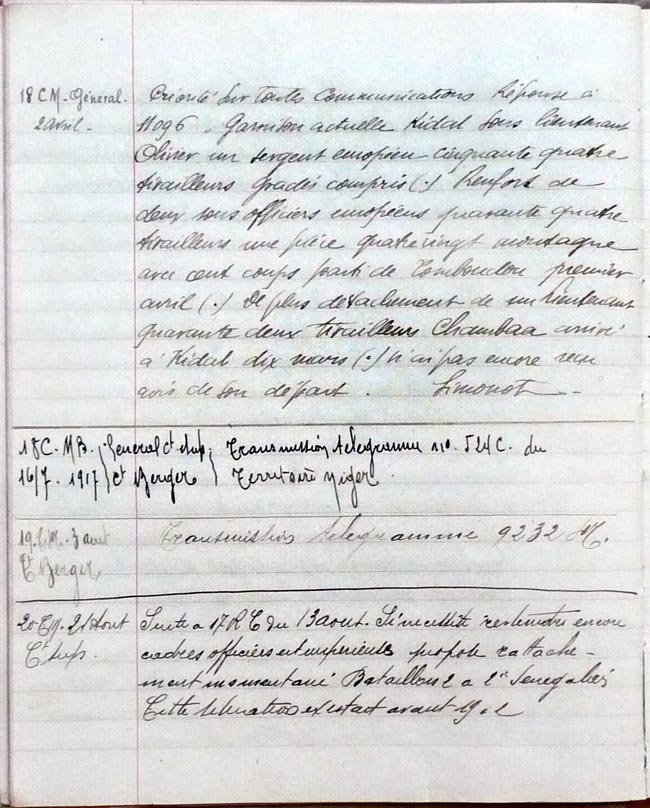 18 CM - Général.
2 avril -
Priorité sur toutes communications Réponse à
11096. Garnison actuelle Kidal sous lieutenant
Olivier un sergent européen cinquante quatre
tirailleurs gradés compris (.) Renfort de
deux sous officiers européens quarante quatre
tirailleurs une pièce quatre vingt montagne
avec cent coups parti de Tombouctou premier
avril (.) De plus détachement de un lieutenant
quarante deux tirailleurs Chambaa arrivé
à Kidal dix mars (.) N'ai pas encore reçu
avis de son départ. Simonot -
18 C. MB. Général Ct Sup. Transmission télégramme no. 524 C. du
16/7. 1917 Ct Berger Territoire Niger.
19. CM. 3 aout Transmission télégramme 9232 M.
Ct Berger
20 21 Aout
Ct Sup.
Suite a 17 R C du 13 aout. Si nécessité restreindre encore
cadres officiers est impérieuse propose rattache-
ment momentané Bataillon 2 a 2e Sénégalais
Cette situation existait avant 19